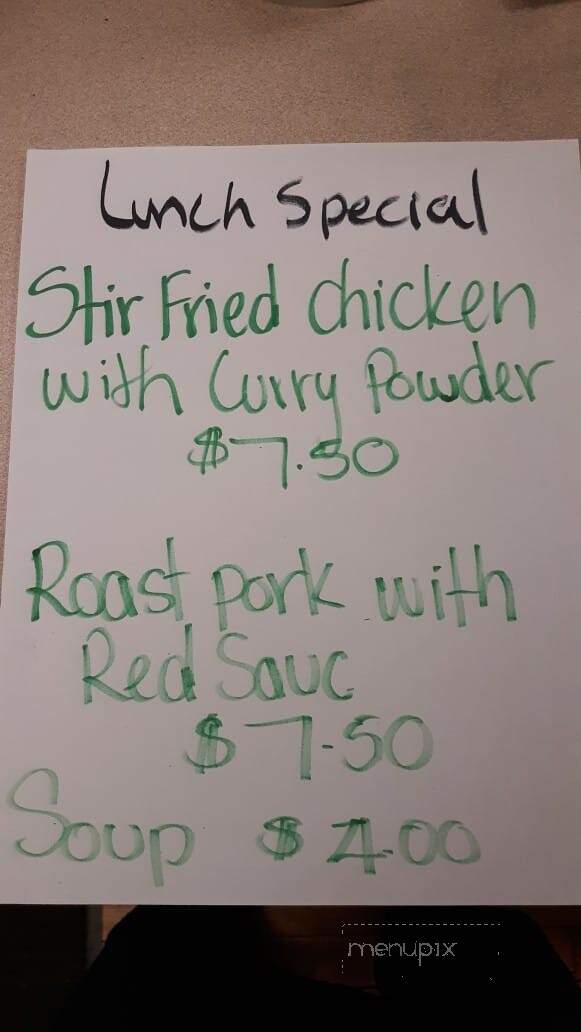 Lunch Special
Stir Fried chicken
with Curry Powder
$7.50
Roast pork with
Red Sauc
$7.50
Soup $4.00
menupix